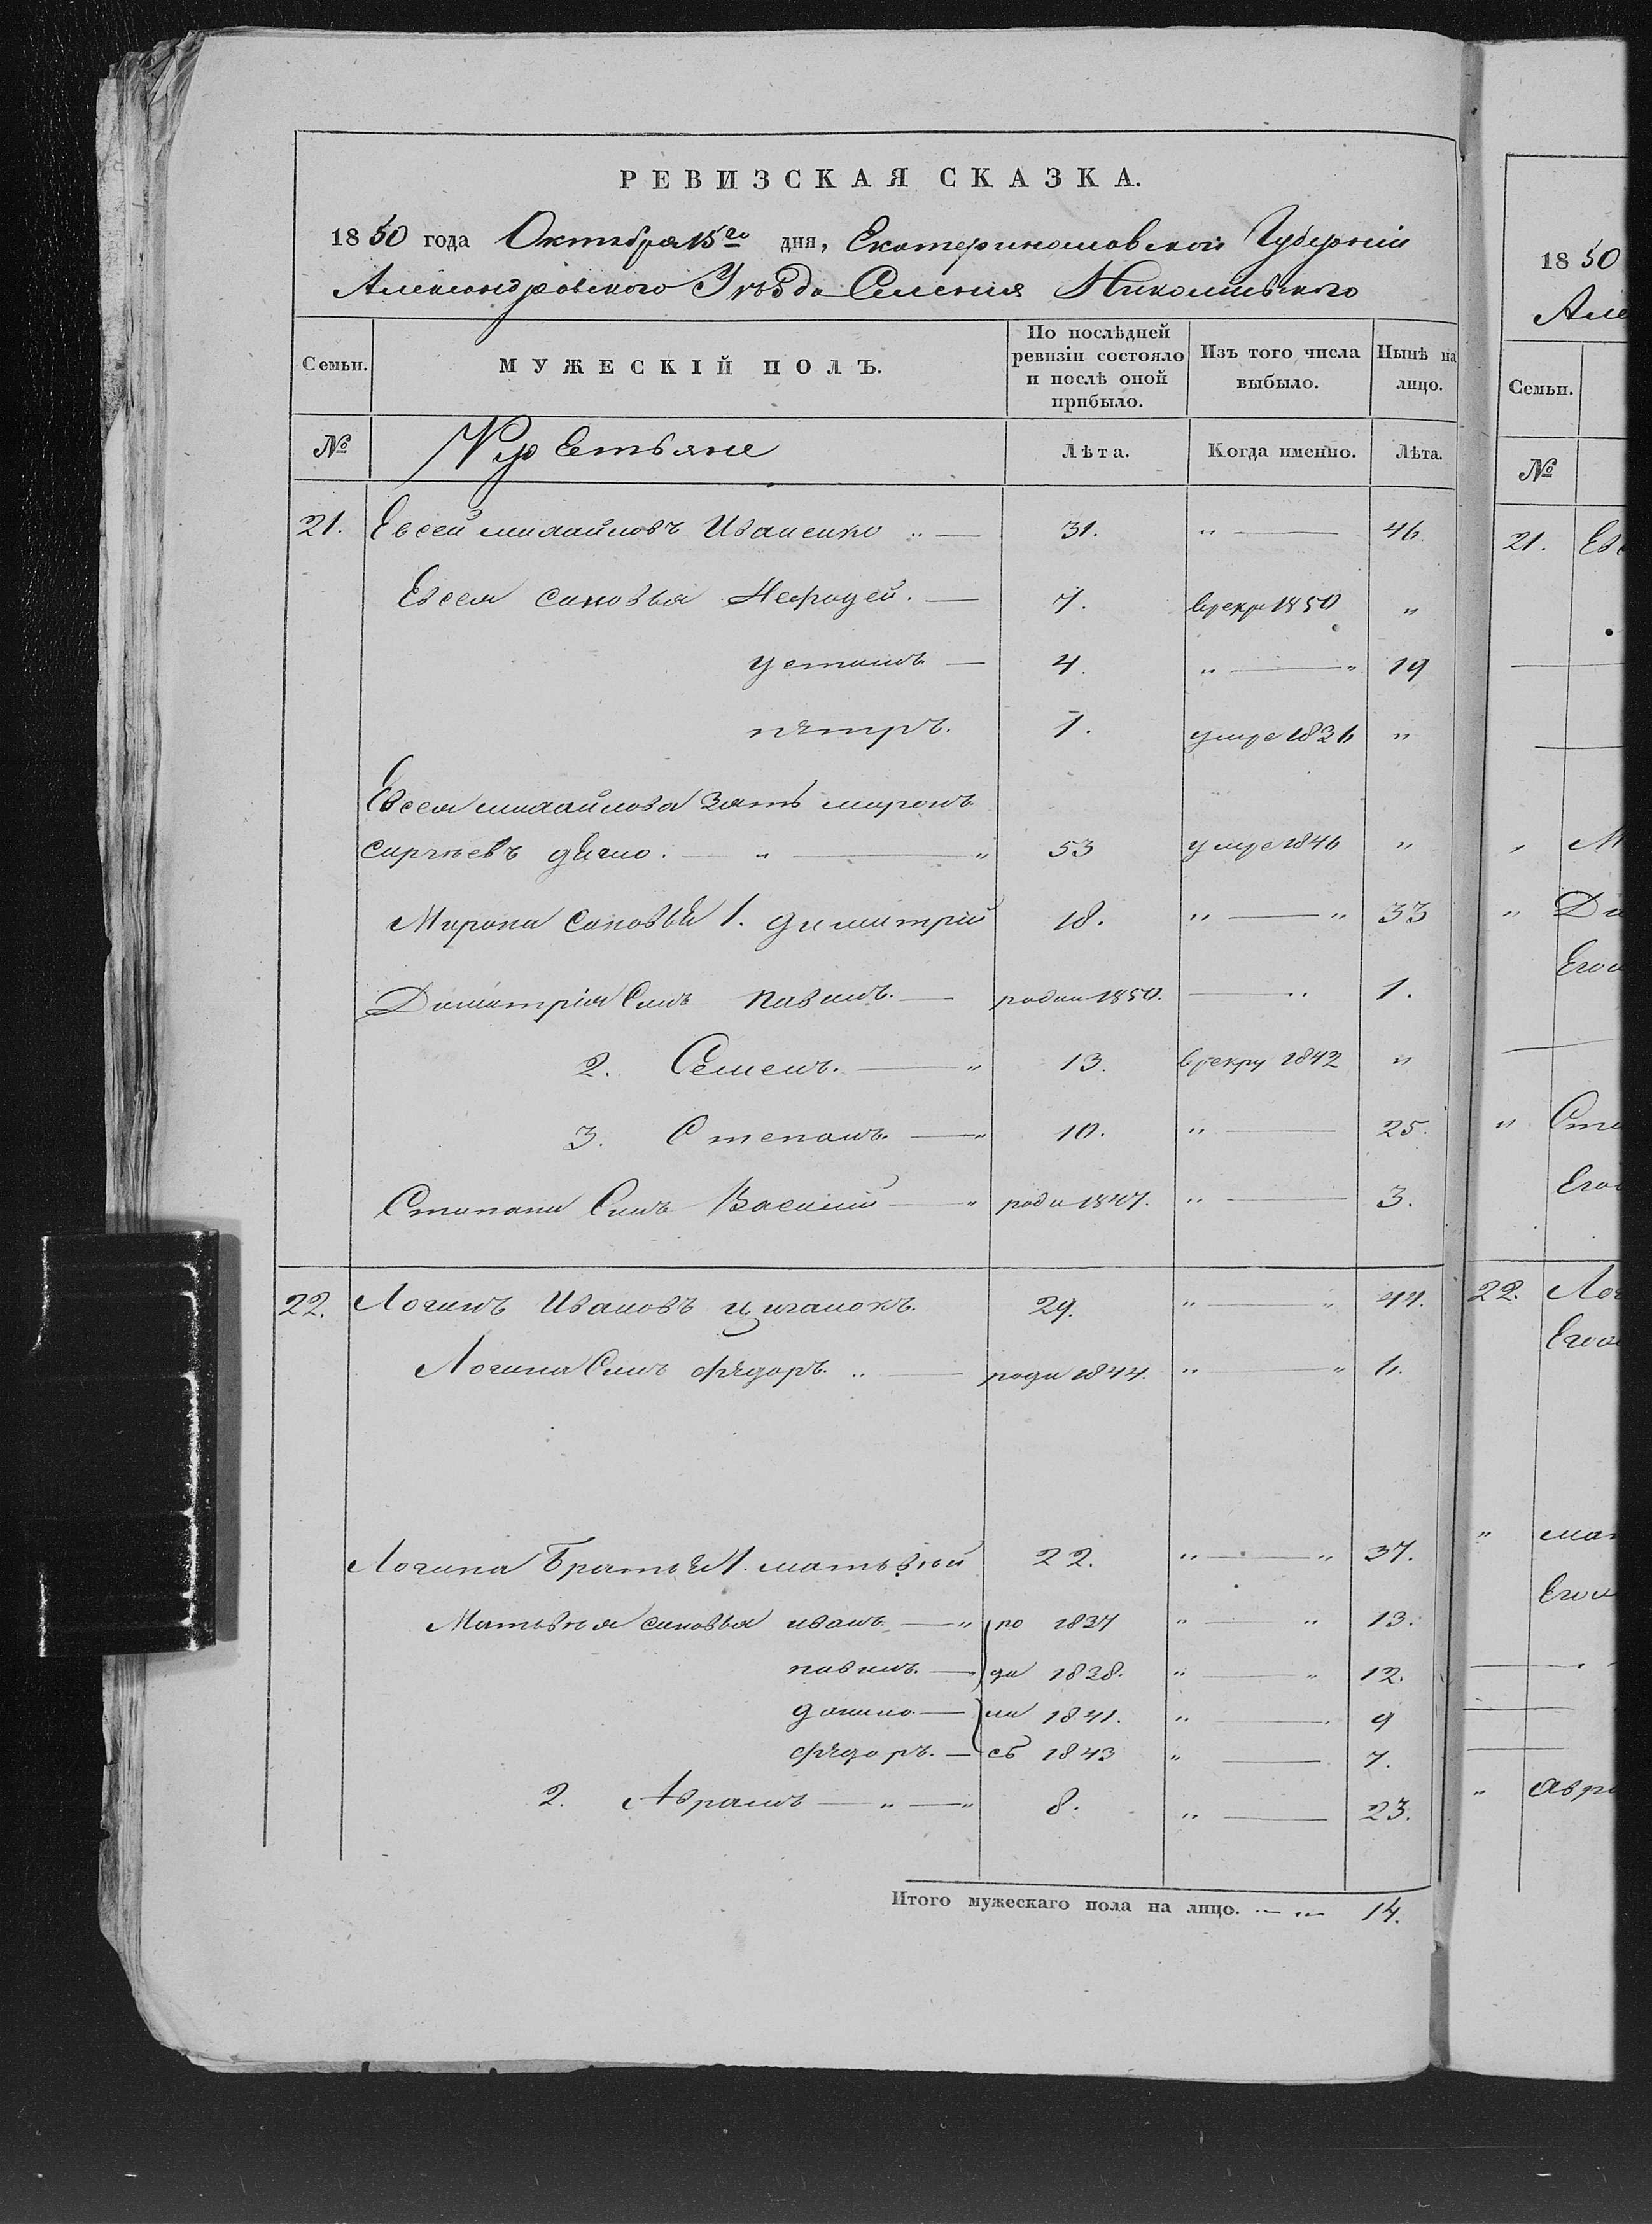 РЕВИЗСКАЯ СКАЗКА.
1850 года Октября 15го дня, Екатеринославской Губернии
Александровского Уезда Селения Николаевского
Семьи. МУЖЕСКІЙ ПОЛЪ. По послѣдней ревизіи состояло и послѣ оной прибыло. Изъ того числа выбыло. Нынѣ на лицо.
№ Крестьяне Лѣта. Когда именно. Лѣта.
21. Евсей михайловъ Иваненко „ — 31. „ — 46.
Евсея синовья Мефодей. — 7. врекру 1850 „
устинъ — 4. „ — „ 19
пѣтръ. 1. умре 1836 „
Евсея михайлова зять миронъ
сиргѣевъ — „ — „ 53 умре 1846 „
Мирона синовья 1. димитрій 18. „ — „ 33
Димитрія Синъ павилъ. — роди 1850. — „ 1.
2. Семенъ. — „ 13. врекру 1842 „
3. Степанъ. — „ 10. „ — 25.
Стипана Синъ Василий — „ роди 1847. „ — 3.
22. Логинъ Ивановъ циганокъ. 29. „ — „ 44.
Логина Синъ фѣдоръ. „ — роди 1844. „ — „ 6.
Логина Братья 1. матьвѣй 22. „ — „ 37.
Матьвѣя синовья иванъ — „ ро 1837 „ — „ 13.
павилъ. — ди 1838. „ — „ 12.
данило — ли 1841. „ — 9
фѣдоръ. — сь 1843 „ — 7.
2. Аврамъ — „ — „ 8. „ — 23.
Итого мужескаго пола на лицо. — „ — 14.
1850
Але
Семьи.
№
21. Евс
„ М
„ Ди
Его
„ Сте
Его
22. Лог
Его
„ мат
Его
„ авра